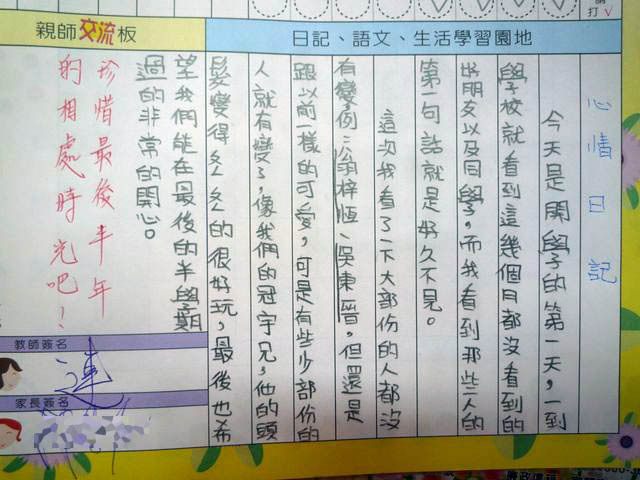 打✓
日記、語文、生活學習園地
親師交流板
心情日記
今天是開學的第一天,一到
學校就看到這幾個月都沒看到的
好朋友以及同學,而我看到那些人的
第一句話就是好久不見。
這次我看了一下大部份的人都沒
有變例:翁梓恆、吳東晉,但還是
跟以前一樣的可愛,可是有些少部份的
人就有變了,像我們的冠宇兄,他的頭
髮變得ㄠㄠ的很好玩,最後也希
望我們能在最後的半學期
過的非常的開心。
珍惜最後半年
的相處時光吧!
教師簽名
連
家長簽名